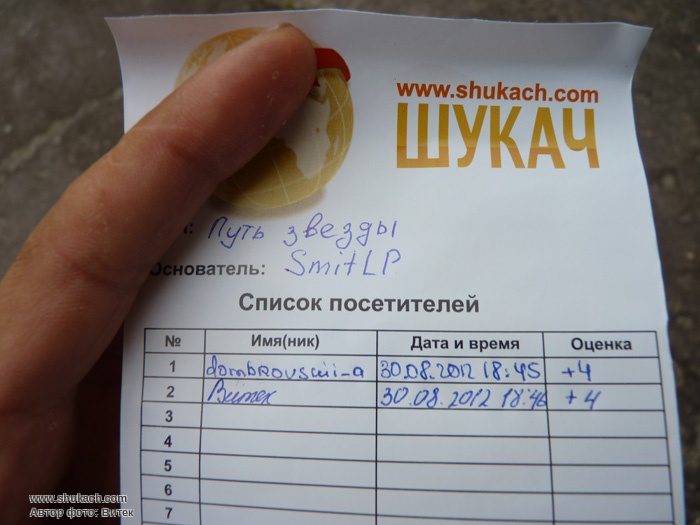 www.shukach.com
ШУКАЧ
Путь звезды
Основатель: SmitLP
Список посетителей
№ Имя(ник) Дата и время Оценка
1 dombrovskii-a 30.08.2012 18:45 +4
2 Витек 30.08.2012 18:46 +4
3
4
5
6
7
www.shukach.com
Автор фото: Витек